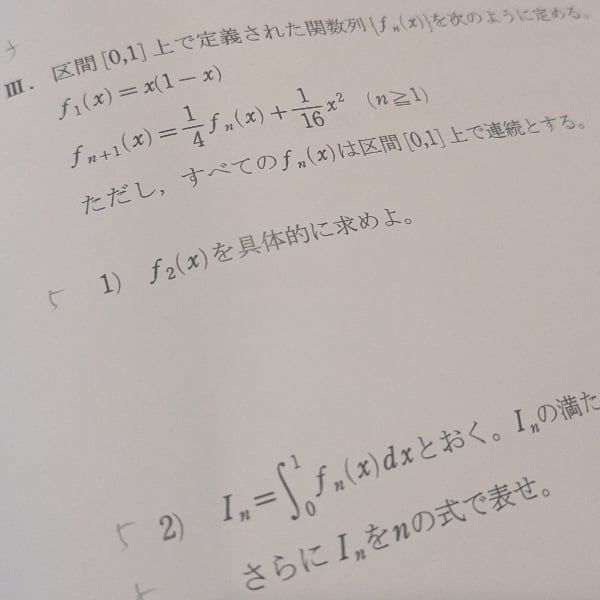 III. 区間[0,1]上で定義された関数列{fₙ(x)}を次のように定める。
f₁(x)=x(1-x)
fₙ₊₁(x)=1/4 fₙ(x)+1/16 x² (n≧1)
ただし，すべてのfₙ(x)は区間[0,1]上で連続とする。
5 1) f₂(x)を具体的に求めよ。
5 2) Iₙ=∫₀¹fₙ(x)dxとおく。Iₙの満た
さらにIₙをnの式で表せ。